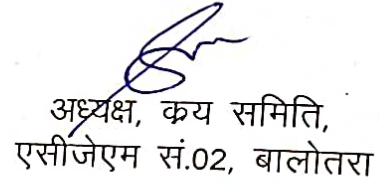 अध्यक्ष, क्रय समिति,
एसीजेएम सं.02, बालोतरा